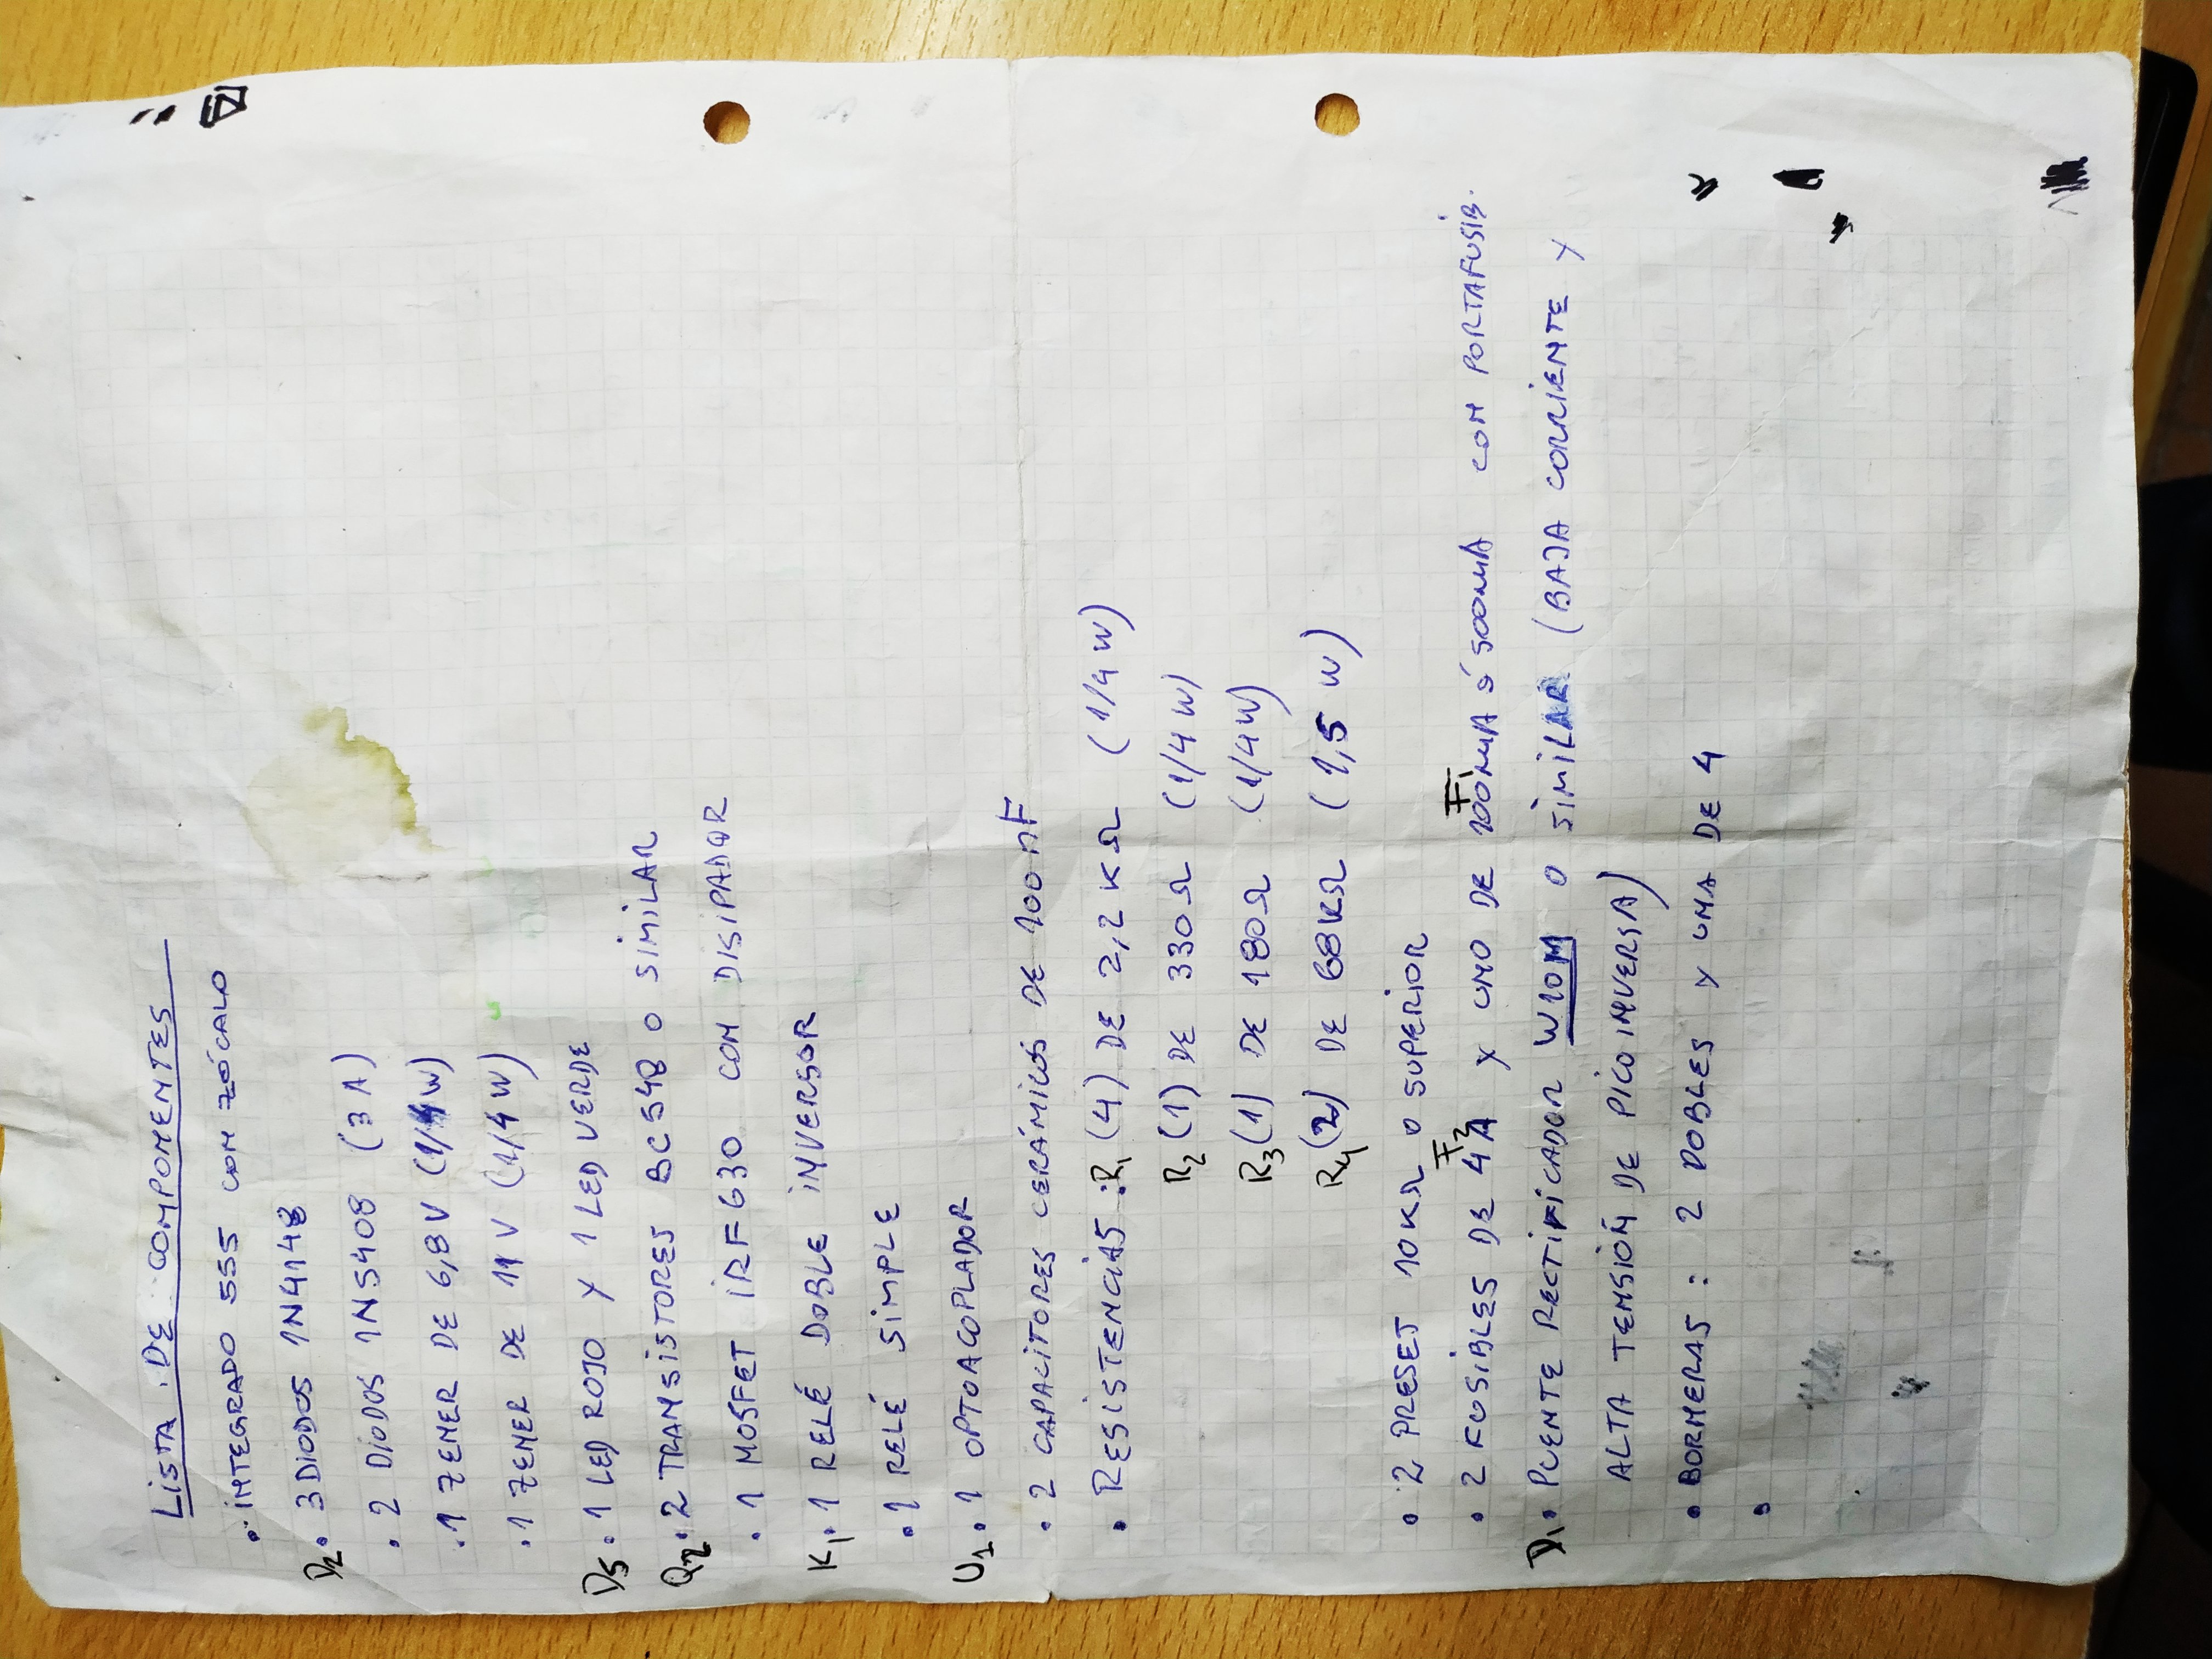 LISTA DE COMPONENTES
• INTEGRADO 555 CON ZÓCALO
D2 • 3 DIODOS 1N4148
• 2 DIODOS 1N5408 (3 A)
• 1 ZENER DE 6,8 V (1/4 W)
• 1 ZENER DE 11 V (1/4 W)
D5 • 1 LED ROJO Y 1 LED VERDE
Q2 • 2 TRANSISTORES BC548 O SIMILAR
• 1 MOSFET IRF630 CON DISIPADOR
K1 • 1 RELÉ DOBLE INVERSOR
• 1 RELÉ SIMPLE
U1 • 1 OPTOACOPLADOR
• 2 CAPACITORES CERÁMICOS DE 100 nF
• RESISTENCIAS : R1 (4) DE 2,2 KΩ (1/4 W)
R2 (1) DE 330 Ω (1/4 W)
R3 (1) DE 180 Ω (1/4 W)
R4 (2) DE 68 KΩ (1,5 W)
• 2 PRESET 10 KΩ O SUPERIOR
F2 F1
• 2 FUSIBLES DE 4 A Y UNO DE 100mA ó 500mA CON PORTAFUSIB.
D1 • PUENTE RECTIFICADOR W10M O SIMILAR (BAJA CORRIENTE Y
ALTA TENSIÓN DE PICO INVERSA)
• BORNERAS : 2 DOBLES Y UNA DE 4
•